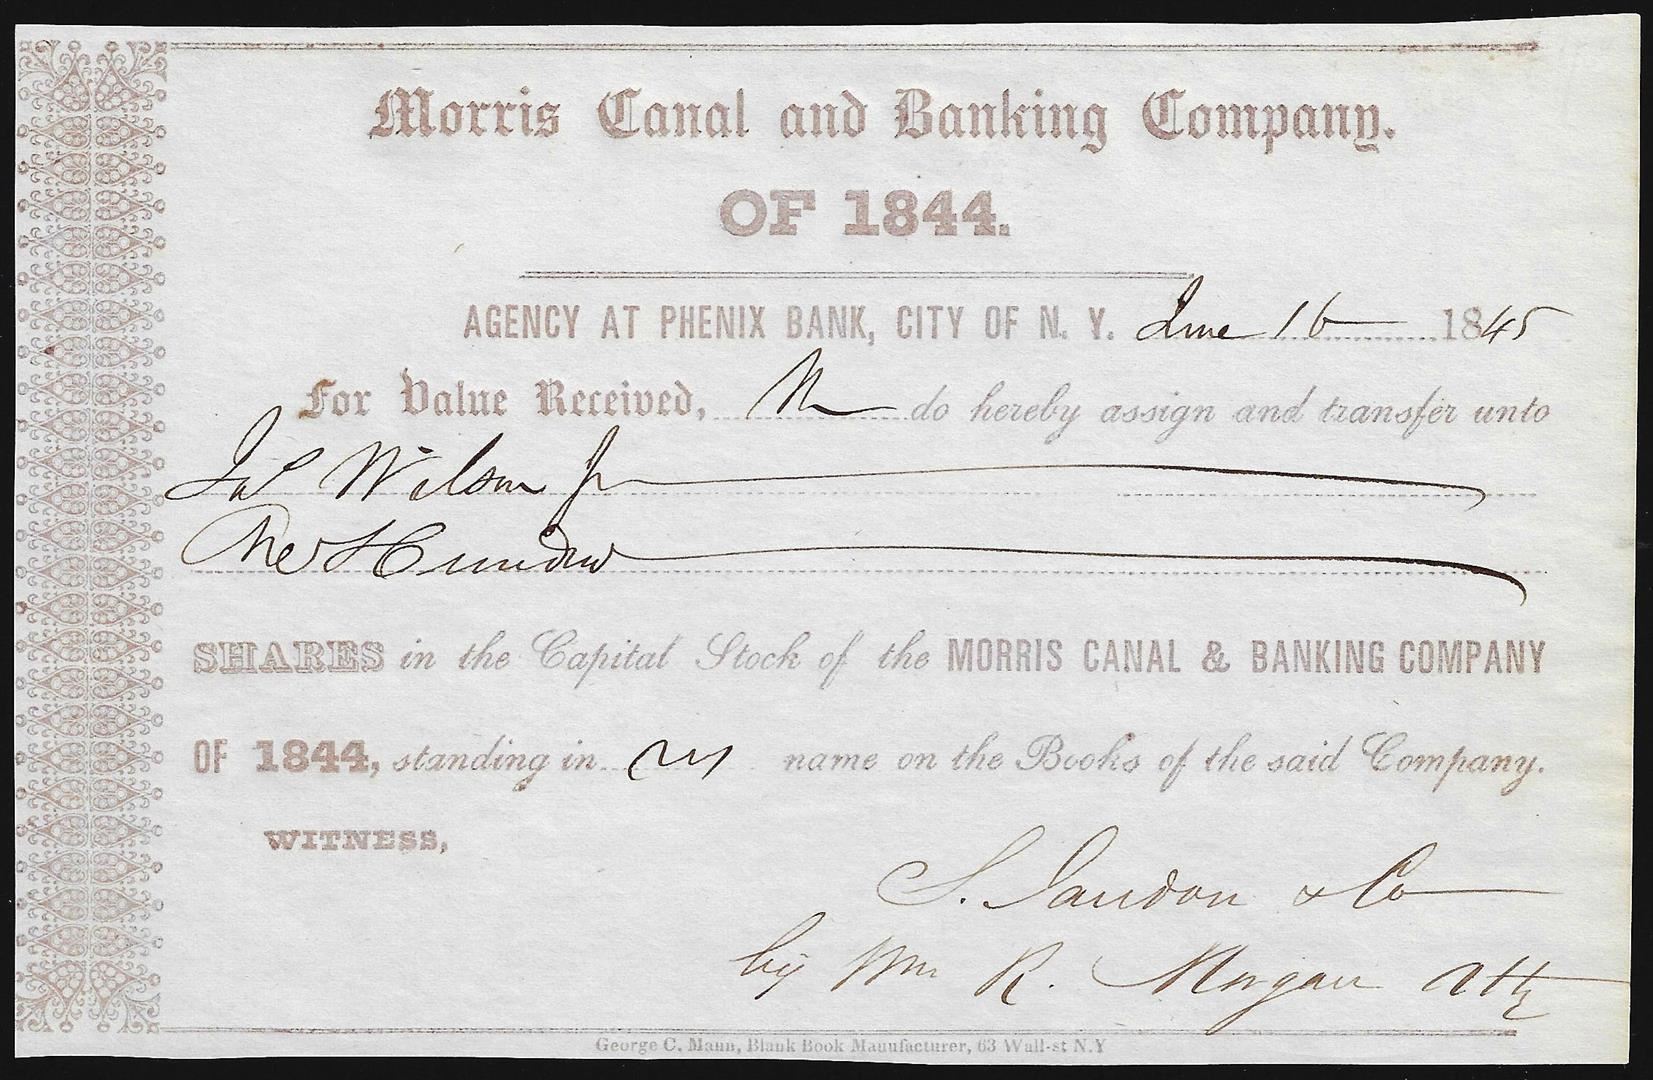 Morris Canal and Banking Company.
OF 1844.
AGENCY AT PHENIX BANK, CITY OF N. Y. June 16 1845
For Value Received, We do hereby assign and transfer unto
Jas Wilson Jr
One Hundred
SHARES in the Capital Stock of the MORRIS CANAL & BANKING COMPANY
OF 1844, standing in our name on the Books of the said Company.
WITNESS,
S. Jaudon & Co
by Wm R. Morgan Atty
George C. Mann, Blank Book Manufacturer, 63 Wall-st N.Y